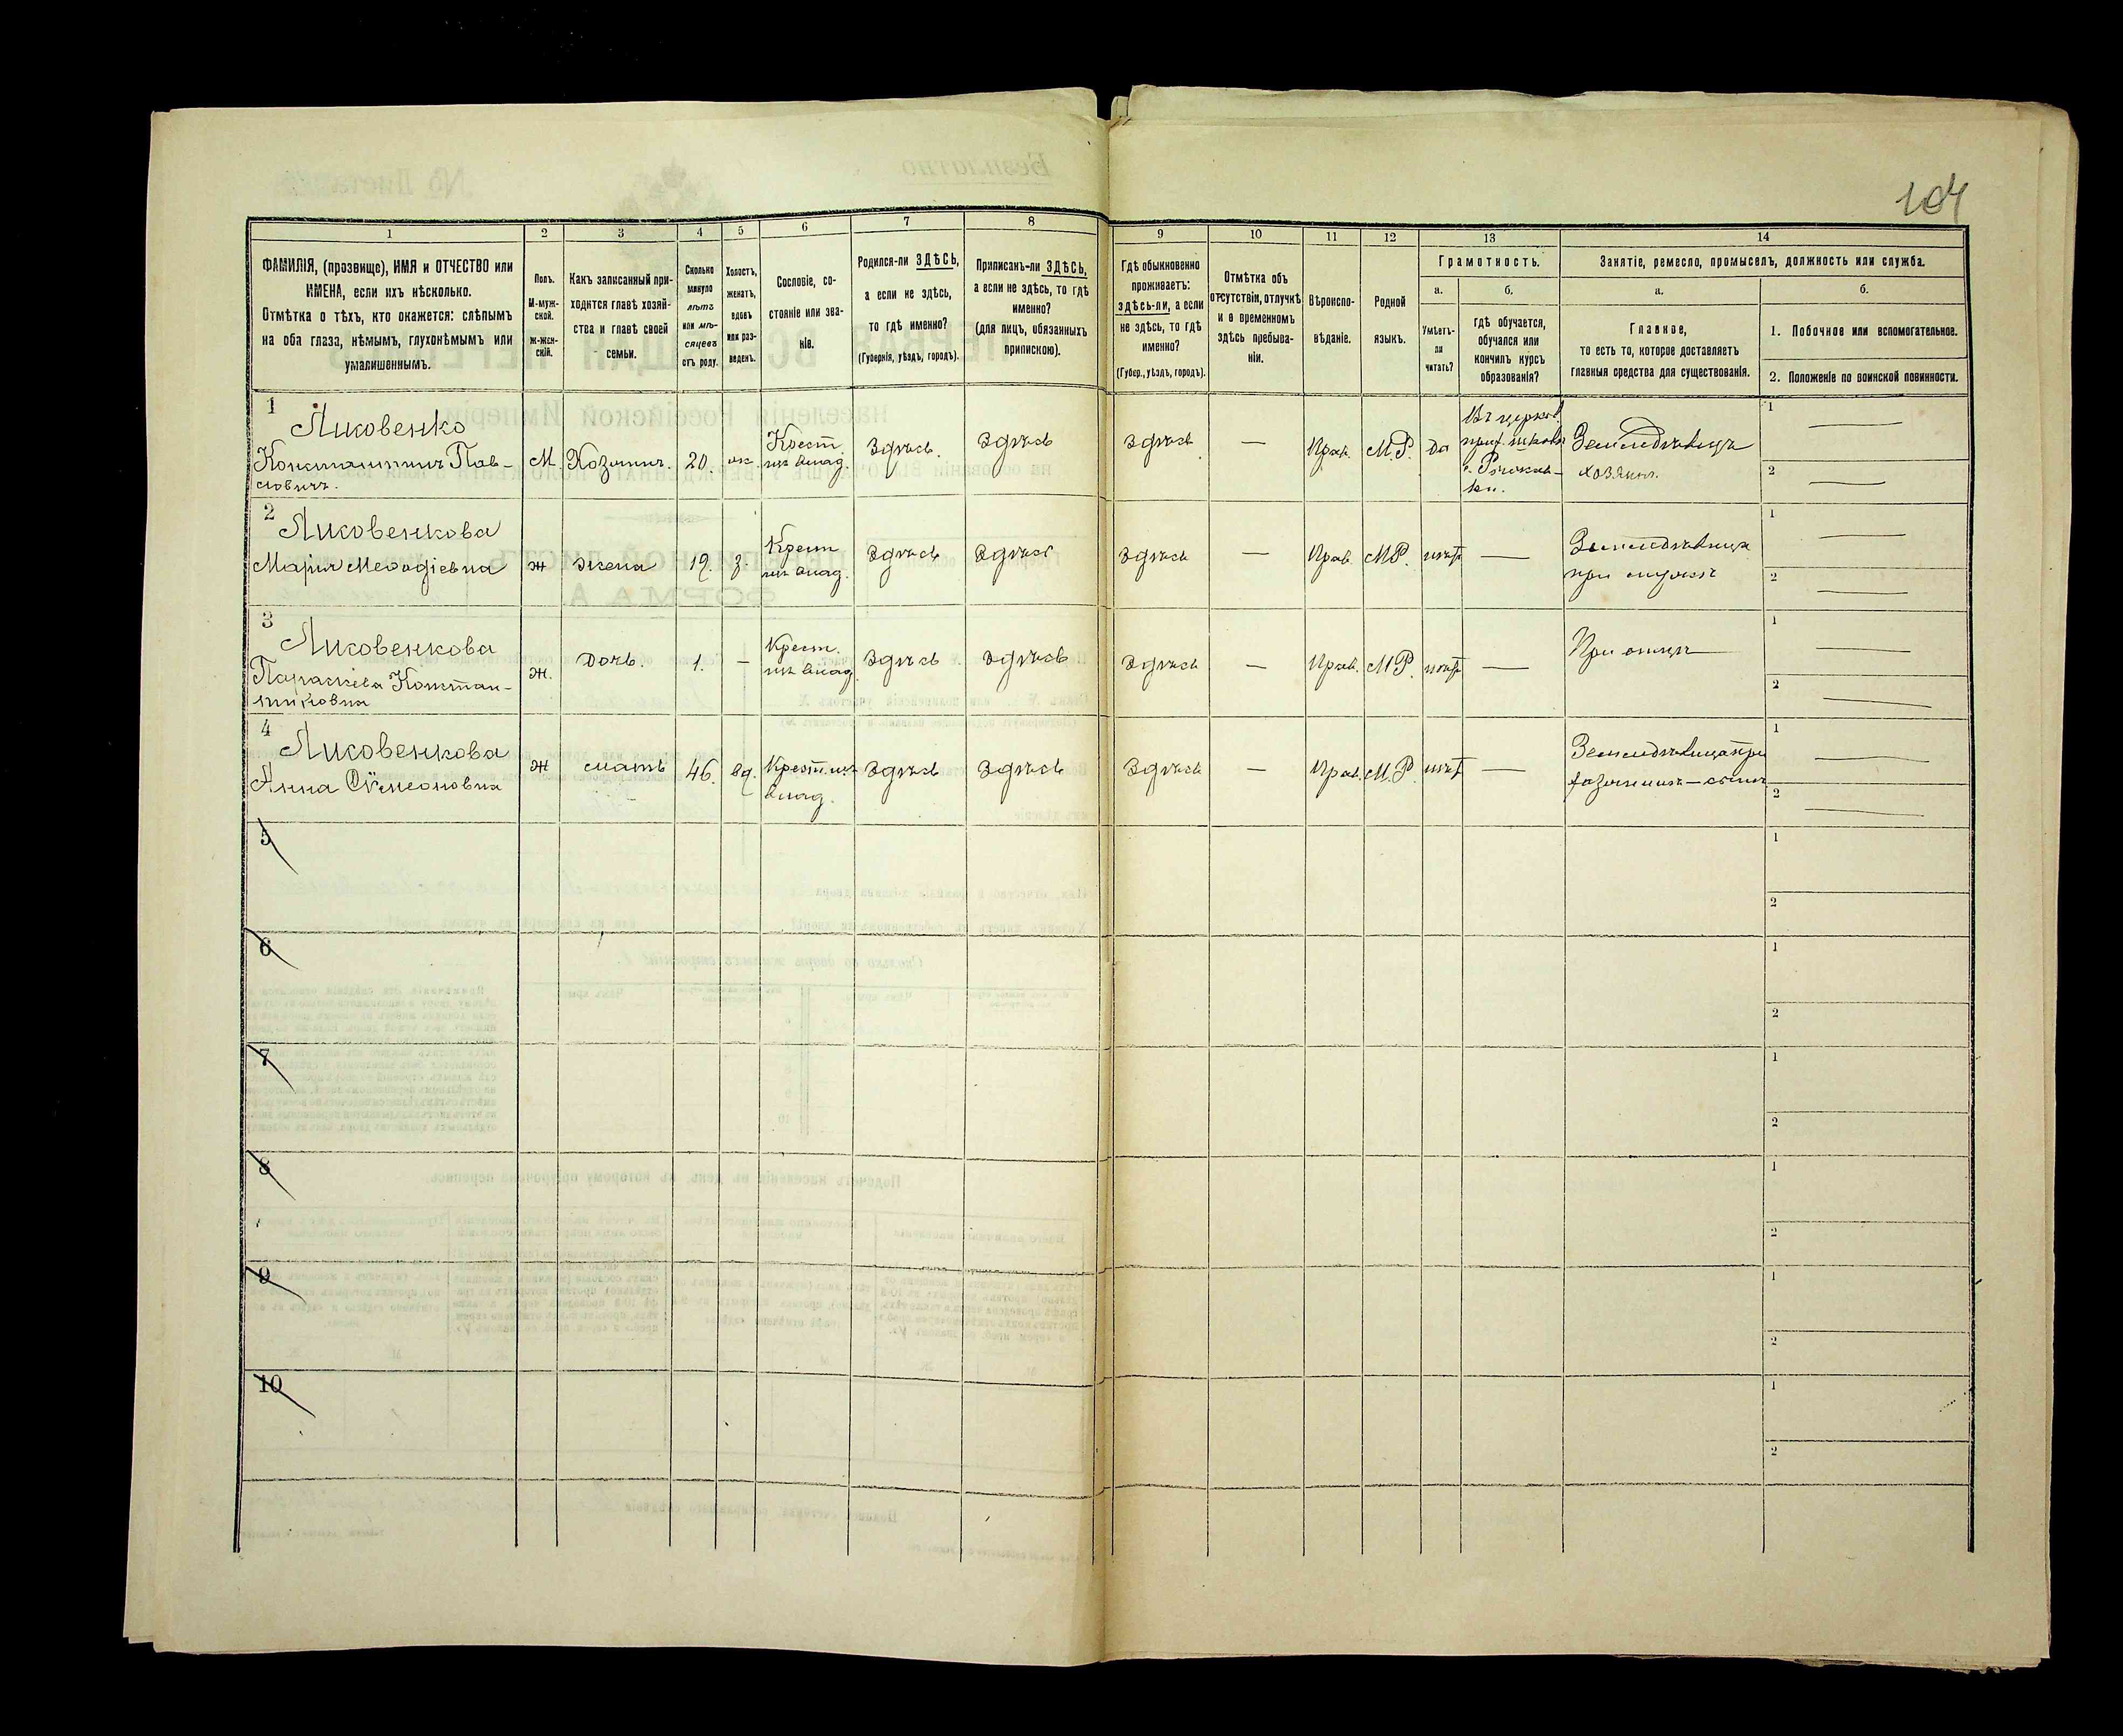 104
1 2 3 4 5 6 7 8 9 10 11 12 13 14
ФАМИЛІЯ, (прозвище), ИМЯ и ОТЧЕСТВО или
ИМЕНА, если ихъ нѣсколько.
Отмѣтка о тѣхъ, кто окажется: слѣпымъ
на оба глаза, нѣмымъ, глухонѣмымъ или
умалишеннымъ.
Полъ.
М-муж-
ской.
Ж-жен-
скій.
Какъ записанный при-
ходится главѣ хозяй-
ства и главѣ своей
семьи.
Сколько
минуло
лѣтъ
или мѣ-
сяцевъ
отъ роду.
Холостъ,
женатъ,
вдовъ
или раз-
веденъ.
Сословіе, со-
стояніе или зва-
ніе.
Родился-ли ЗДѢСЬ,
а если не здѣсь,
то гдѣ именно?
(Губернія, уѣздъ, городъ).
Приписанъ-ли ЗДѢСЬ,
а если не здѣсь, то гдѣ
именно?
(для лицъ, обязанныхъ
припискою).
Гдѣ обыкновенно
проживаетъ:
здѣсь-ли, а если
не здѣсь, то гдѣ
именно?
(Губер., уѣздъ, городъ).
Отмѣтка объ
отсутствіи, отлучкѣ
и о временномъ
здѣсь пребыва-
ніи.
Вѣроиспо-
вѣданіе.
Родной
языкъ.
Грамотность.
а.
Умѣетъ-
ли
читать?
б.
Гдѣ обучается,
обучался или
кончилъ курсъ
образованія?
Занятіе, ремесло, промыселъ, должность или служба.
а.
Главное,
то есть то, которое доставляетъ
главныя средства для существованія.
б.
1. Побочное или вспомогательное.
2. Положеніе по воинской повинности.
1
Яковенко
Константинъ Пав-
ловичъ.
М. Хозяинъ. 20. ж.
Крест.
изъ влад.
Здѣсь. Здѣсь Здѣсь — Прав. М.Р. да
Въ церков.
прих. школѣ
с.
Земледѣлецъ
хозяинъ.
1 —
2 —
2
Яковенкова
Марія Меѳодіевна
ж жена 19. з.
Крест
изъ влад.
Здѣсь Здѣсь Здѣсь — Прав М.Р. нѣтъ —
Земледѣлица
при мужѣ
1 —
2 —
3
Яковенкова
Параскева Констан-
тиновна
ж. дочь. 1. —
Крест.
изъ влад.
Здѣсь Здѣсь Здѣсь — Прав. М.Р. нѣтъ —
При отцѣ
1 —
2 —
4
Яковенкова
Анна Сѵмеоновна
ж мать 46. вд.
Крест. изъ
влад.
Здѣсь Здѣсь Здѣсь — Прав. М.Р. нѣтъ —
Земледѣлица при
хозяинѣ — сынѣ
1 —
2 —
5 1
2
6 1
2
7 1
2
8 1
2
9 1
2
10 1
2